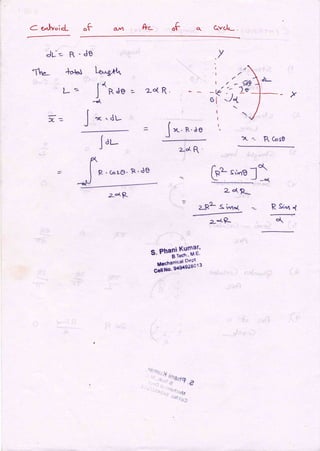 Centroid of an Arc of a Circle.
dL = R · dθ
y
The total length
L = ∫_{-α}^{α} R dθ = 2αR.
dL
dθ
θ
α
0
x
x̄ = ∫ x · dL / ∫ dL = ∫ x · R · dθ / 2αR.
x = R Cosθ
= ∫_{-α}^{α} R · Cosθ · R · dθ / 2αR = [R² Sinθ]_{-α}^{α} / 2αR
= 2R² Sinα / 2αR = R Sinα / α
S. Phani Kumar,
B.Tech., M.E.
Mechanical Dept
Cell No. 9494928013